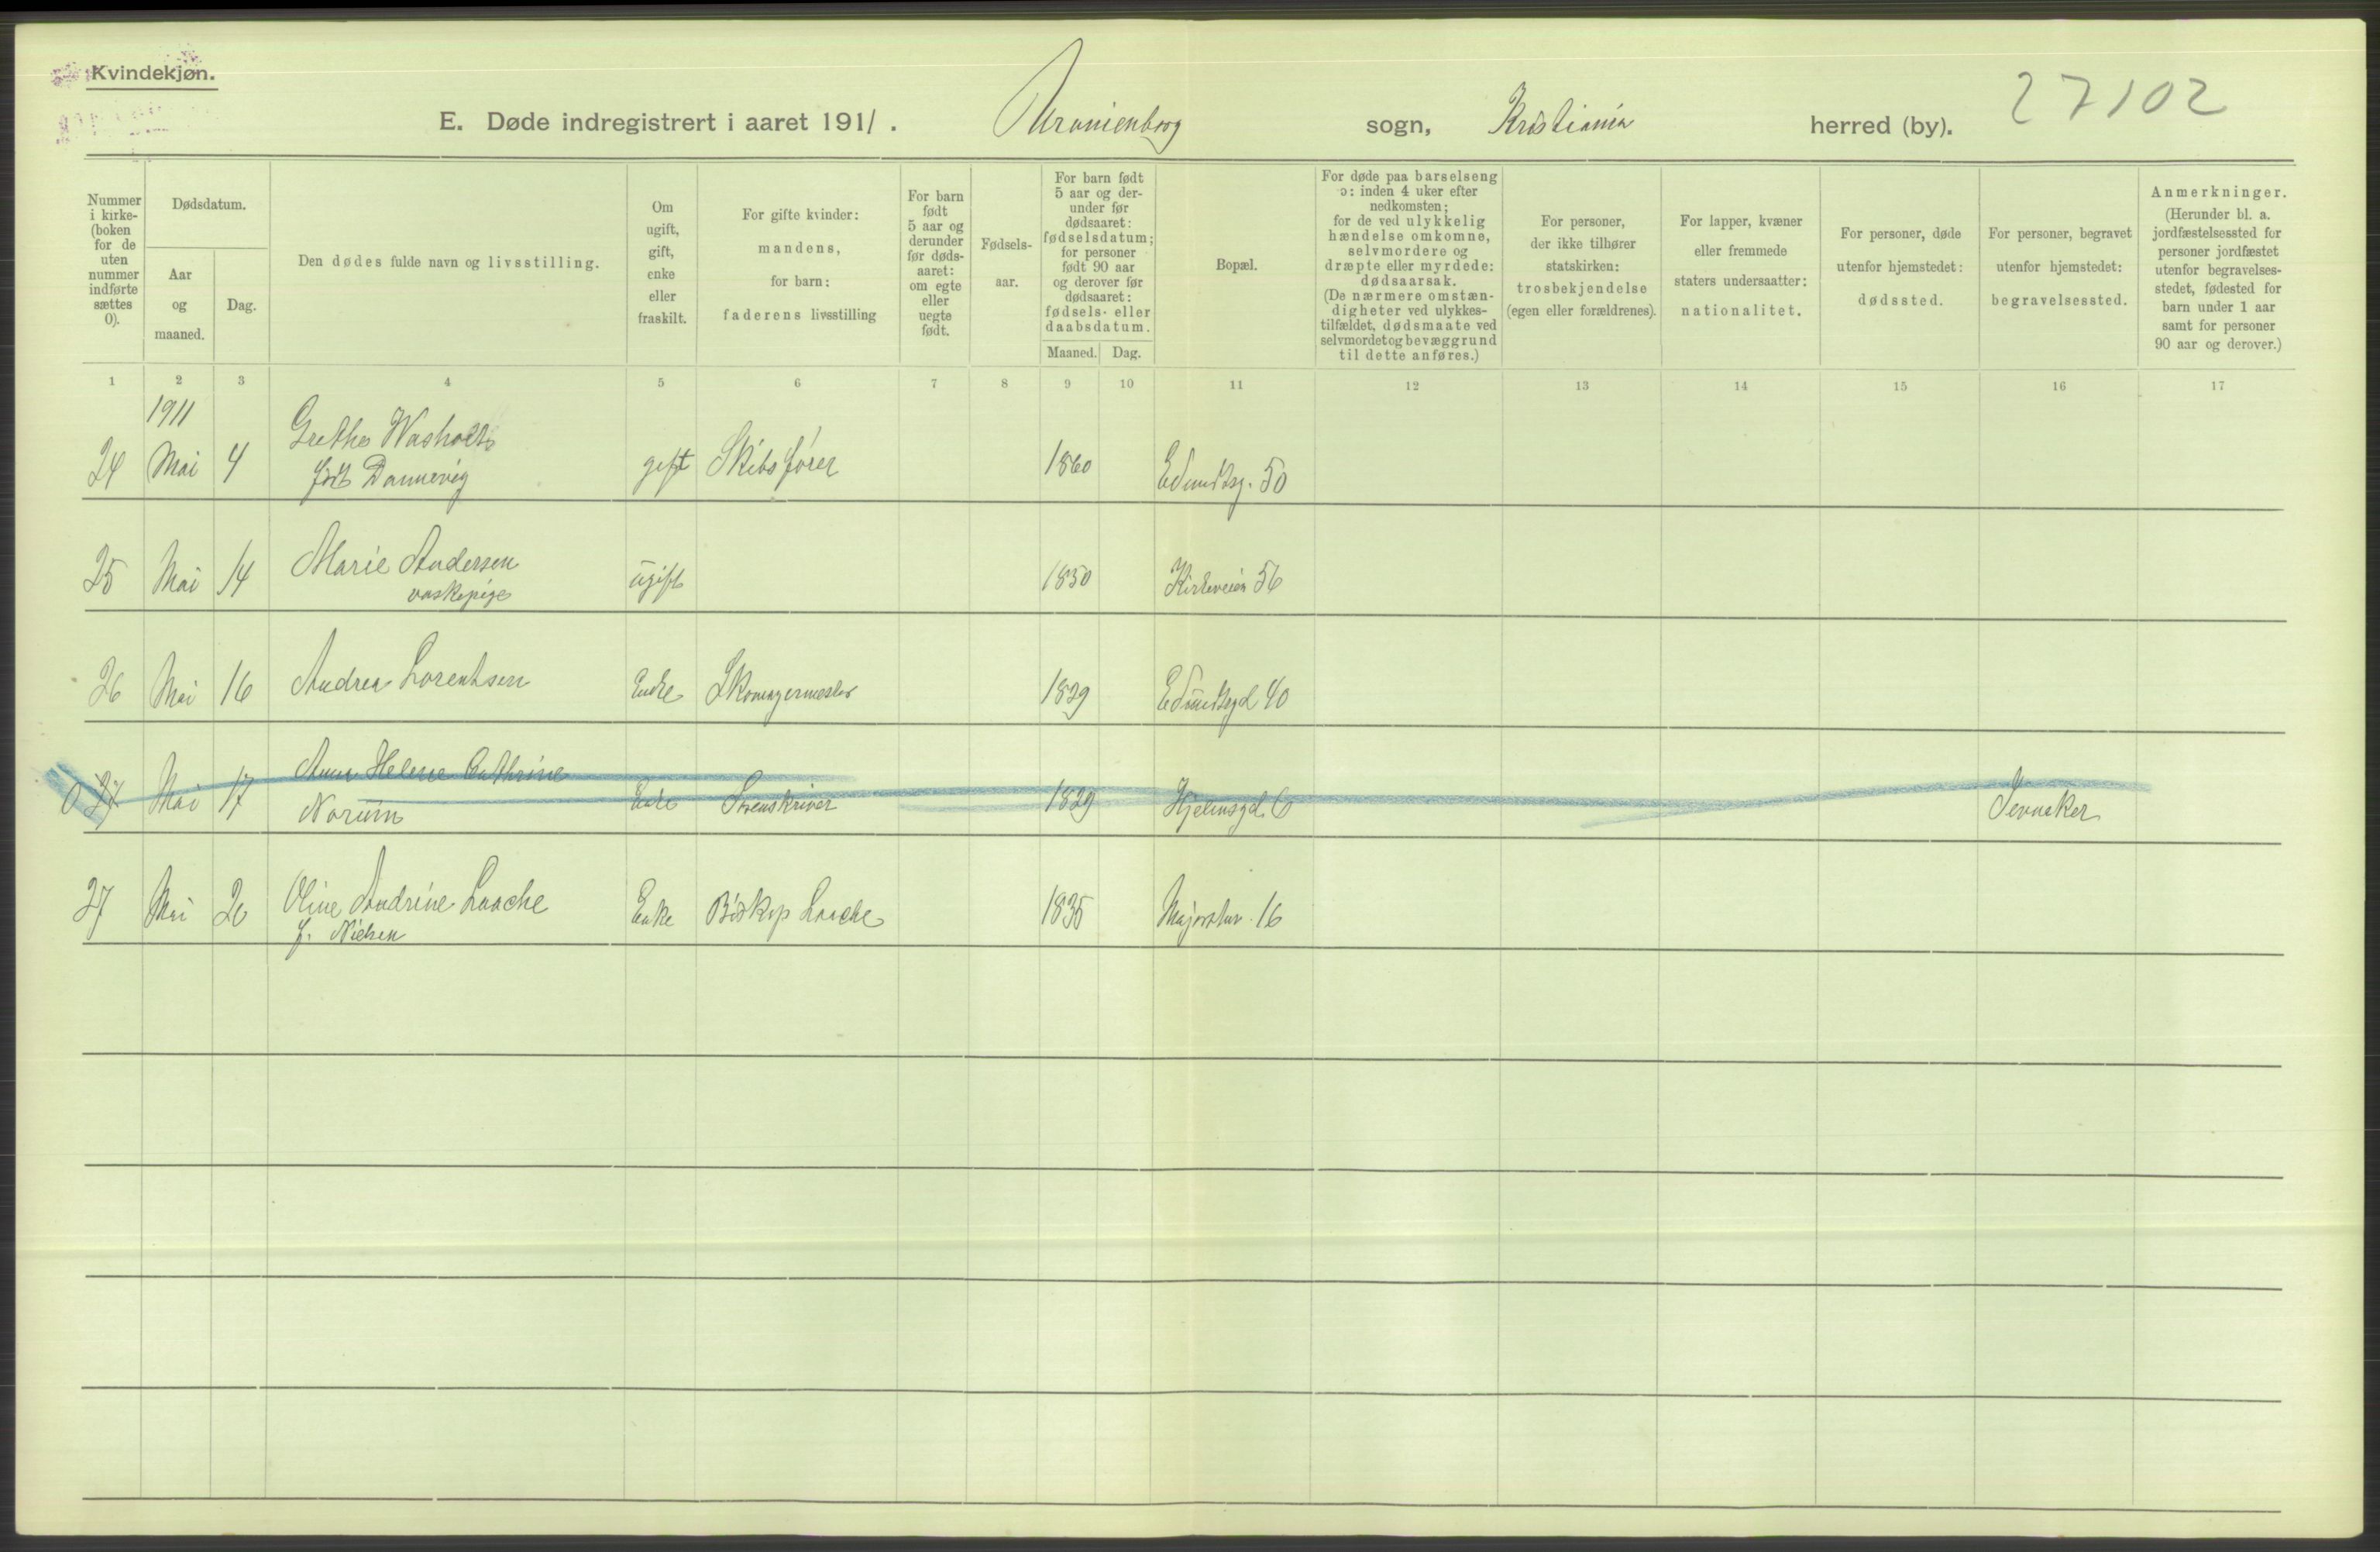 Kvindekjøn.
E. Døde indregistrert i aaret 1911. Uranienborg sogn, Kristiania herred (by). 27102
Nummer i kirke-(boken for de uten nummer indførte sættes 0).
Dødsdatum.
Aar og maaned.
Dag.
Den dødes fulde navn og livsstilling.
Om ugift, gift, enke eller fraskilt.
For gifte kvinder: mandens, for barn: faderens livsstilling
For barn født 5 aar og derunder før døds-aaret: om egte eller uegte født.
Fødsels-aar.
For barn født 5 aar og der-under før dødsaaret: fødselsdatum; for personer født 90 aar og derover før dødsaaret: fødsels- eller daabsdatum.
Maaned. Dag.
Bopæl.
For døde paa barselseng ɔ: inden 4 uker efter nedkomsten; for de ved ulykkelig hændelse omkomne, selvmordere og dræpte eller myrdede: dødsaarsak. (De nærmere omstæn-digheter ved ulykkes-tilfældet, dødsmaate ved selvmordet og bevæggrund til dette anføres.)
For personer, der ikke tilhører statskirken: trosbekjendelse (egen eller forældrenes).
For lapper, kvæner eller fremmede staters undersaatter: nationalitet.
For personer, døde utenfor hjemstedet: dødssted.
For personer, begravet utenfor hjemstedet: begravelsessted.
Anmerkninger. (Herunder bl. a. jordfæstelsessted for personer jordfæstet utenfor begravelses-stedet, fødested for barn under 1 aar samt for personer 90 aar og derover.)
1 2 3 4 5 6 7 8 9 10 11 12 13 14 15 16 17
1911
24 Mai 4 Grethe Washolt gift Skibsfører 1860 Edmundsg. 50
født Dannevig
25 Mai 14 Marie Andersen ugift 1850 Kirkeveien 56
vaskepige
26 Mai 16 Andrea Lorentsen Enke Skomagermester 1829 Edmundsgd 40
0 27 Mai 17 Anna Helene Cathrine Enke Sorenskriver 1829 Hjelmsgd. 6 Jevnaker
Norum
27 Mai 26 Oline Andrine Laache Enke Biskop Laache 1835 Majorstuv. 16
f. Nielsen